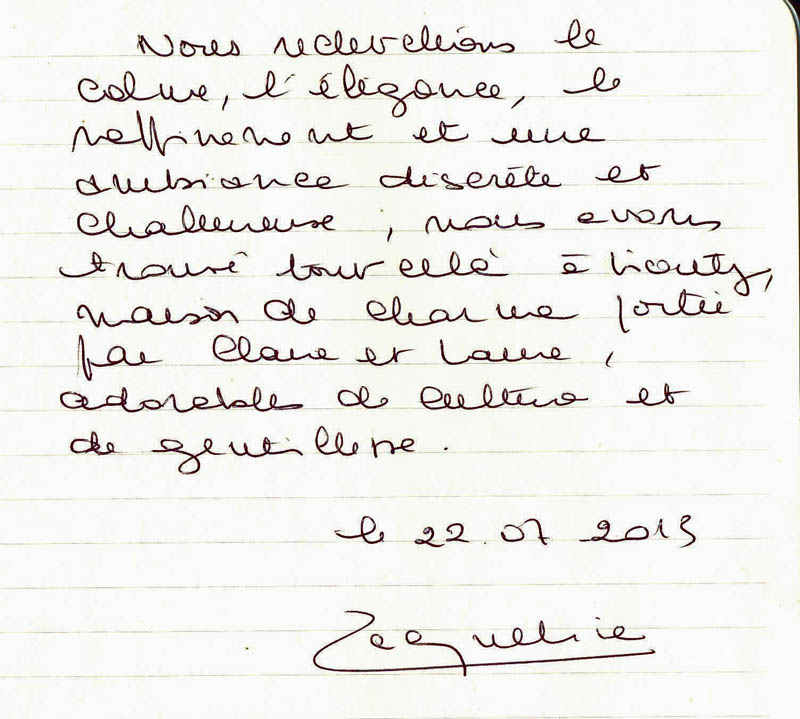 Nous recherchions le
calme, l'élégance, le
raffinement et une
ambiance discrète et
chaleureuse, nous avons
trouvé tout celà à
maison de charme portée
par Claire et Laure,
adorables de culture et
de gentillesse.
le 22.07 2015
Jacqueline